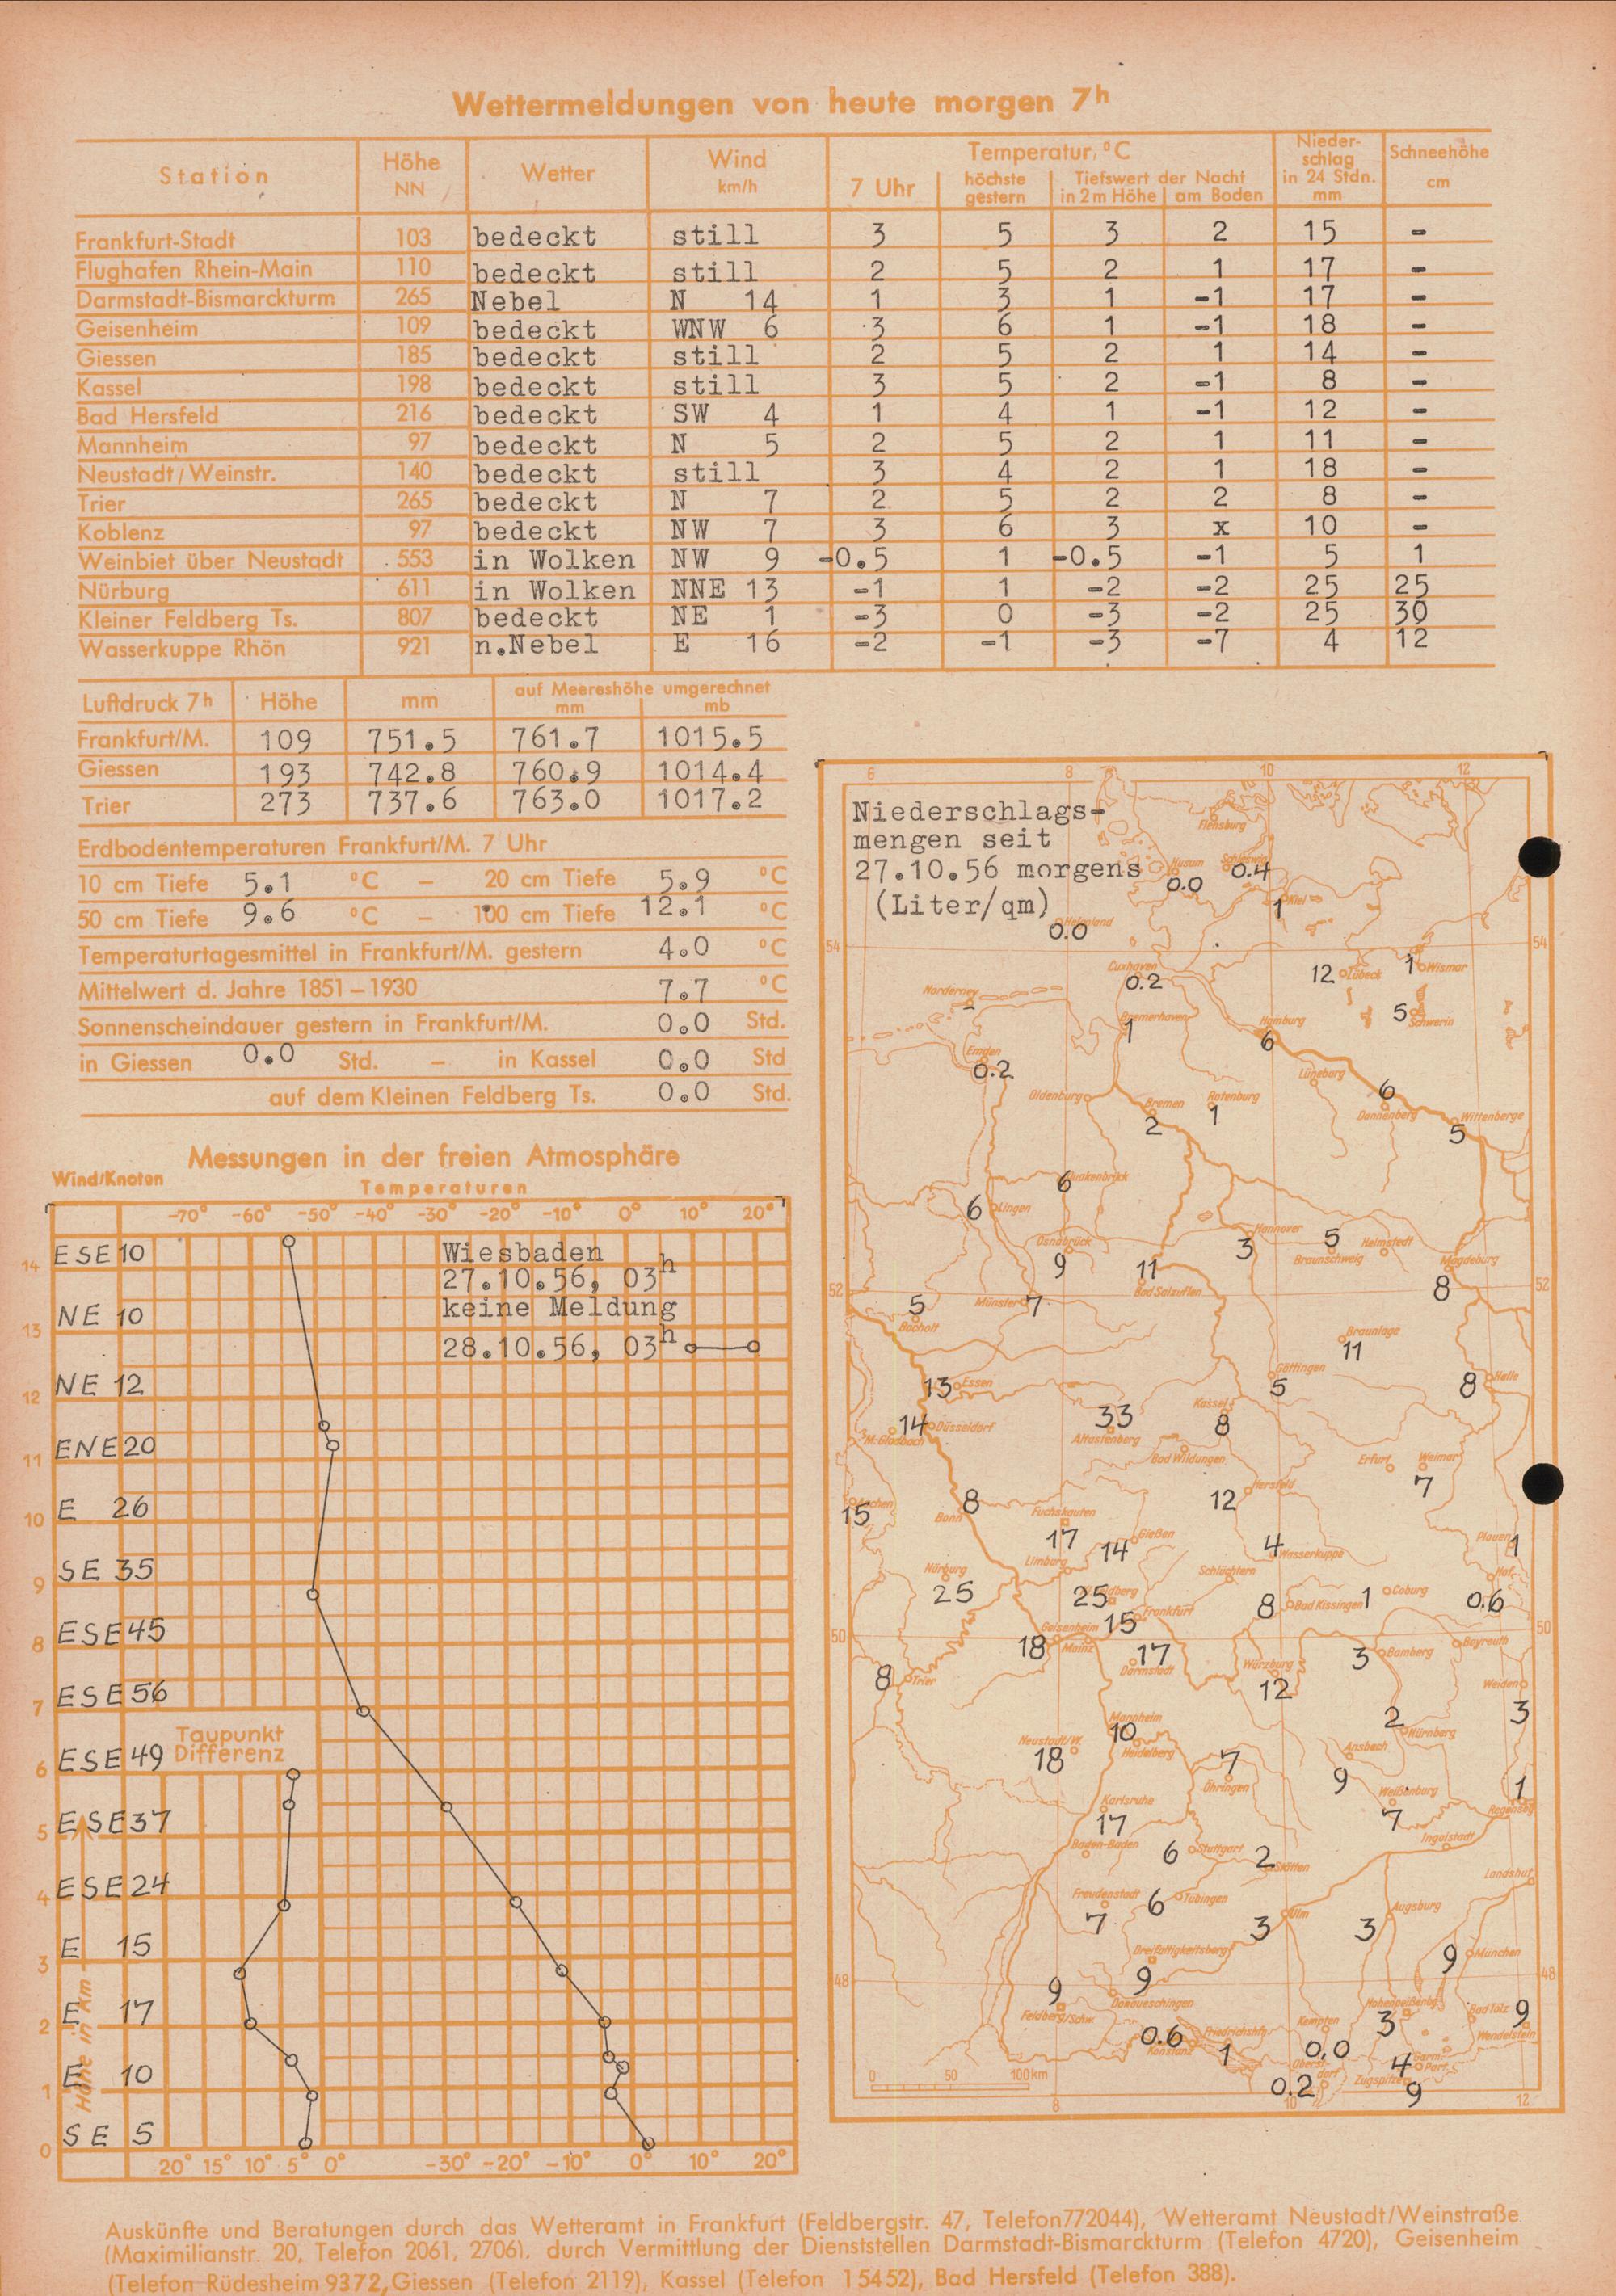 Wettermeldungen von heute morgen 7h
Station Höhe NN Wetter Wind km/h Temperatur, °C Nieder-schlag in 24 Stdn. mm Schneehöhe cm
7 Uhr höchste gestern Tiefswert der Nacht in 2 m Höhe am Boden
Frankfurt-Stadt 103 bedeckt still 3 5 3 2 15 -
Flughafen Rhein-Main 110 bedeckt still 2 5 2 1 17 -
Darmstadt-Bismarckturm 265 Nebel N 14 1 3 1 -1 17 -
Geisenheim 109 bedeckt WNW 6 3 6 1 -1 18 -
Giessen 185 bedeckt still 2 5 2 1 14 -
Kassel 198 bedeckt still 3 5 2 -1 8 -
Bad Hersfeld 216 bedeckt SW 4 1 4 1 -1 12 -
Mannheim 97 bedeckt N 5 2 5 2 1 11 -
Neustadt/Weinstr. 140 bedeckt still 3 4 2 1 18 -
Trier 265 bedeckt N 7 2 5 2 2 8 -
Koblenz 97 bedeckt NW 7 3 6 3 x 10 -
Weinbiet über Neustadt 553 in Wolken NW 9 -0.5 1 -0.5 -1 5 1
Nürburg 611 in Wolken NNE 13 -1 1 -2 -2 25 25
Kleiner Feldberg Ts. 807 bedeckt NE 1 -3 0 -3 -2 25 30
Wasserkuppe Rhön 921 n.Nebel E 16 -2 -1 -3 -7 4 12
Luftdruck 7h Höhe mm auf Meereshöhe umgerechnet mm mb
Frankfurt/M. 109 751.5 761.7 1015.5
Giessen 193 742.8 760.9 1014.4
Trier 273 737.6 763.0 1017.2
Erdbodentemperaturen Frankfurt/M. 7 Uhr
10 cm Tiefe 5.1 °C – 20 cm Tiefe 5.9 °C
50 cm Tiefe 9.6 °C – 100 cm Tiefe 12.1 °C
Temperaturtagesmittel in Frankfurt/M. gestern 4.0 °C
Mittelwert d. Jahre 1851–1930 7.7 °C
Sonnenscheindauer gestern in Frankfurt/M. 0.0 Std.
in Giessen 0.0 Std. – in Kassel 0.0 Std
auf dem Kleinen Feldberg Ts. 0.0 Std.
Messungen in der freien Atmosphäre
Wind/Knoten Temperaturen
-70° -60° -50° -40° -30° -20° -10° 0° 10° 20°
Wiesbaden
27.10.56, 03h
keine Meldung
28.10.56, 03h
14 ESE 10
13 NE 10
12 NE 12
11 ENE 20
10 E 26
9 SE 35
8 ESE 45
7 ESE 56
Taupunkt
Differenz
6 ESE 49
5 ESE 37
4 ESE 24
3 E 15
2 E 17
1 E 10
0 SE 5
Höhe in km
20° 15° 10° 5° 0° -30° -20° -10° 0° 10° 20°
6 8 10 12
Niederschlags-
mengen seit
27.10.56 morgens
(Liter/qm)
Flensburg
Husum 0.0 Schleswig 0.4
Kiel 1
Helgoland 0.0
54 54
Cuxhaven 0.2 12 Lübeck 1 Wismar
Norderney -
Bremerhaven 1 Hamburg 6 5 Schwerin
Emden 0.2 Lüneburg
Oldenburg Bremen 2 Rotenburg 1 6 Dannenberg Wittenberge 5
6 Quakenbrück
6 Lingen
Osnabrück 9 Hannover 3 5 Braunschweig Helmstedt
11 Bad Salzuflen Magdeburg 8
52 52
5 Bocholt Münster 7
Braunlage 11
13 Essen Göttingen 5 8 Halle
14 Düsseldorf 33 Altastenberg Kassel 8
M.Gladbach Bad Wildungen Erfurt Weimar 7
Aachen 15 Bonn 8 Hersfeld 12
Fuchskauten 17 14 Gießen 4 Wasserkuppe Plauen 1
Nürburg 25 Limburg Schlüchtern Hof 0.6
25 Feldberg 8 Bad Kissingen 1 Coburg
15 Frankfurt
50 50
Geisenheim 18 Mainz 17 Darmstadt 3 Bamberg Bayreuth
8 Trier Würzburg 12 Weiden 3
Mannheim 10 Heidelberg 2 Nürnberg
Neustadt/W. 18 7 Öhringen Ansbach 9
Karlsruhe 17 Weißenburg 7 1 Regensbg
Baden-Baden 6 Stuttgart 2 Stötten Ingolstadt
Landshut
Freudenstadt 7 6 Tübingen
3 Ulm 3 Augsburg
Dreifaltigkeitsberg 9 9 München
48 48
9 Feldberg/Schw. Donaueschingen Hohenpeißenbg. 3 Bad Tölz 9 Wendelstein
0.6 Konstanz Friedrichshfn. 1 Kempten 0.0
Oberst-dorf 0.2 4 Garm. Part. Zugspitze 9
0 50 100 km
8 10 12
Auskünfte und Beratungen durch das Wetteramt in Frankfurt (Feldbergstr. 47, Telefon 772044), Wetteramt Neustadt/Weinstraße
(Maximilianstr. 20, Telefon 2061, 2706), durch Vermittlung der Dienststellen Darmstadt-Bismarckturm (Telefon 4720), Geisenheim
(Telefon Rüdesheim 9372, Giessen (Telefon 2119), Kassel (Telefon 15452), Bad Hersfeld (Telefon 388).